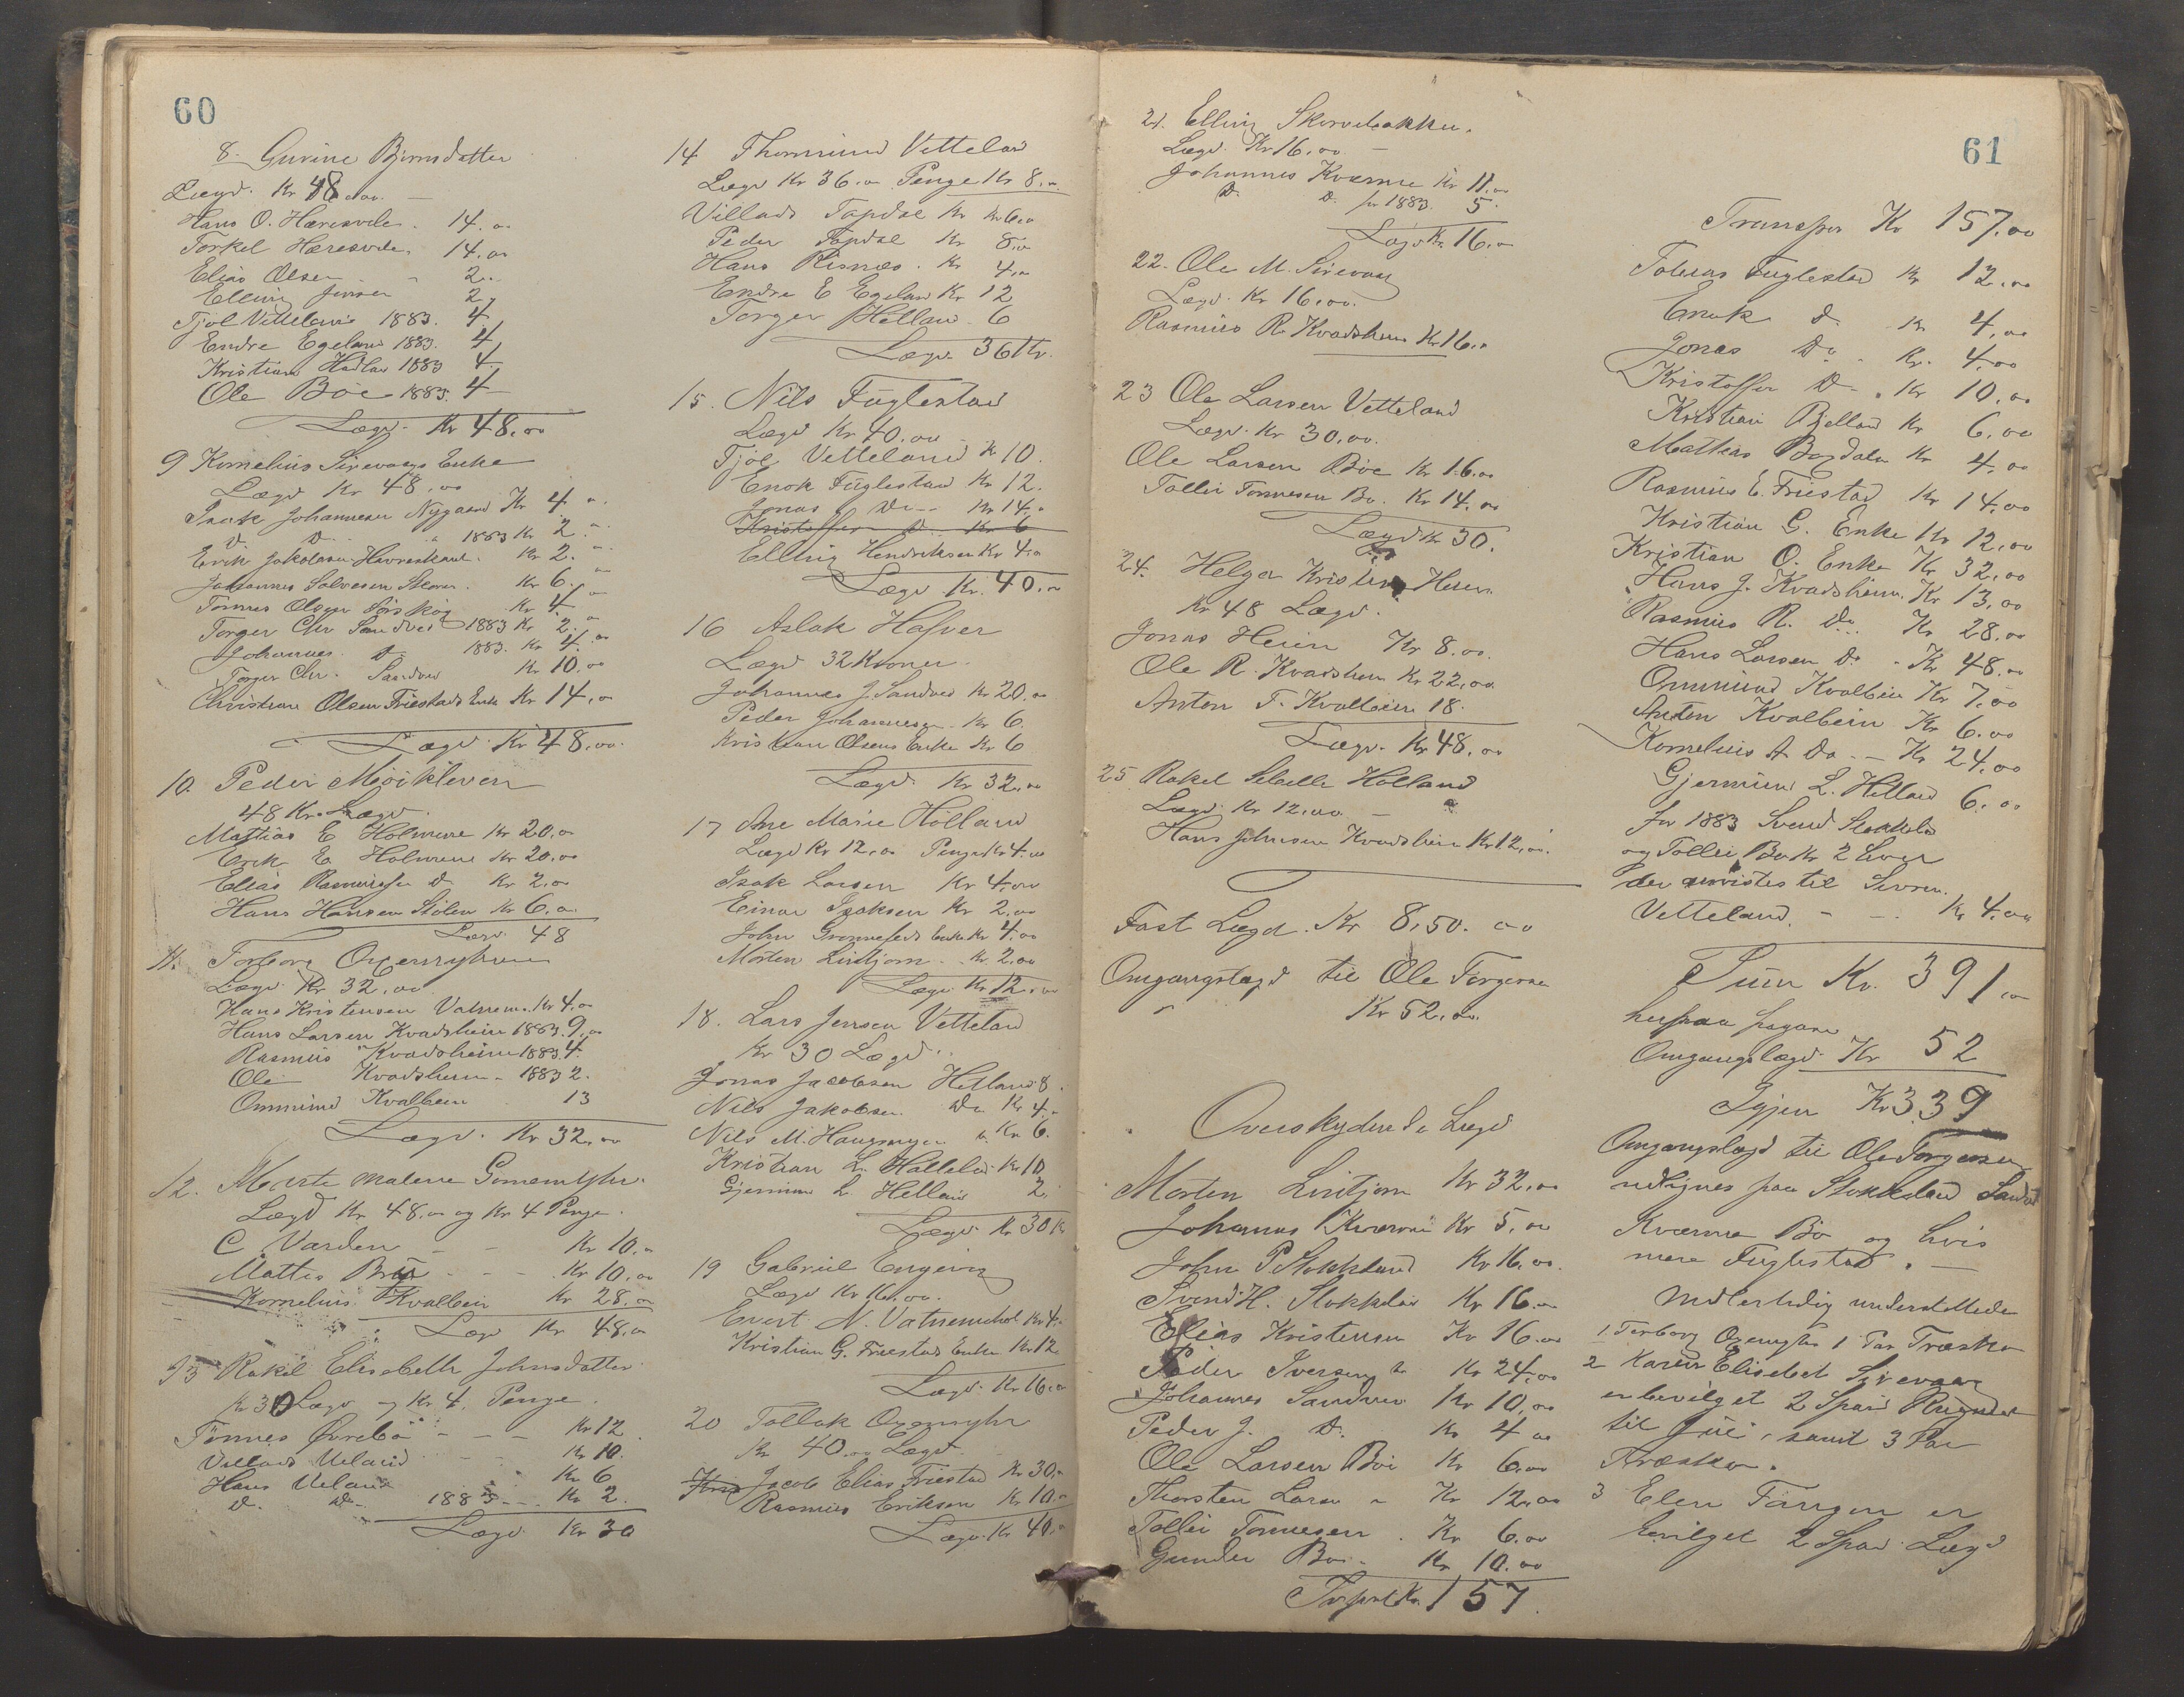 60
8. Gurine Bjørnsdatter
Lægd. Kr 48.00.
Hans O. Hæresvele. 14.00
Torkel Hæresvele. 14.00
Elias Olsen - 2..
Elling Jensen 2,
Tjøl Vetteland 1883. 4
Endre Egeland 1883. 4
Kristian Hadland 1883 4
Ole Böe 1883. 4
Lægd. Kr 48.00
9 Kornelius Sirevaags Enke
Lægd Kr 48.00
Isak Johannesen Nygaard Kr 4.
D. D. 1883 Kr 2.
Erik Jakobsen Kr 2.
Johannes Salvesen Kr 6.
Tönnes Olsen Kr 4
Torger Chr Sandved 1883 Kr 2.
Johannes D. 1883. Kr 4.
Torger Chr. Sandved Kr 10.00
Christian Olsen Friestads Enke Kr 14.00
Lægd. Kr 48.00.
10. Peder Møikleven
48 Kr. Lægd.
Mattias E Holmene Kr 20.00
Erik E. Holmene Kr 20.00
Elias Rasmussen D. Kr 2.00
Hans Hansen Stölen Kr 6.00
Lægd. 48
11. Torborg Oxemyhren
Lægd. Kr 32.00
Hans Kristensen Kr 4.00
Hans Larsen Kvadsheim 1883. 9.00
Rasmus Kvadsheim 1883. 4.
Ole Kvadsheim - 1883 2.
Ommund Kvalbein 13
Lægd. Kr 32.00
12. Marte Malene
Lægd Kr 48.00 og Kr 4 Penge.
C Varden - - Kr 10.
Mattis - - Kr 10.00
Kornelius Kvalbein Kr 28.00
Lægd Kr 48.00
13 Rakel Elisabeth Johnsdatter
Kr 30 Lægd og Kr 4. Penge.
Tönnes Øvrebö - - - Kr 12
Villads Ueland Kr 10.
Hans Ueland Kr 6
D. Do. 1883 - Kr 2.
Lægd. Kr 30
14 Thormund Vetteland
Lægd Kr 36.00 Penge Kr 8.00
Villads Tapdal Kr 6.00
Peder Tapdal Kr 8.00
Hans Risnæs. Kr 4.00
Endre E Egeland Kr 12
Torger Helland. 6
Lægd. 36 Kr.
15. Nils Fuglestad
Lægd Kr 40.00
Tjöl Vetteland Kr 10.
Enok Fuglestad Kr 12.
Jonas Do - Kr 14.
Kristoffer D. Kr 6
Elling Hendriksen Kr 4.00
Lægd Kr. 40.00
16 Aslak Hafver
Lægd 32 Kroner.
Johannes J. Sandved Kr 20.00
Peder Johannesen Kr 6.
Kristian Olsens Enke Kr 6
Lægd. Kr 32.00
17 Ane Marie Holland
Lægd Kr 12.00 Penge Kr 4.00
Isak Larsen Kr 4.00
Einar Isaksen Kr 2.00
John Enke Kr 4.00
Morten Lintjørn. Kr 2.00
Lægd Kr 12.00
18. Lars Jensen Vetteland
Kr 30 Lægd.
Jonas Jacobsen Helland 8.
Nils Jakobsen Do Kr 4.
Nils M. Haugmyren Kr 6.
Kristian L. Kr 10
Gjermund L. Helland 2.
Lægd Kr 30 Kr
19 Gabriel Engevig
Lægd Kr 16.00.
Evert N. Kr 4.
Kristian G. Friestads Enke Kr 12
Lægd. Kr 16.00
20 Tollak Oxemyhr
Kr 40.00 Lægd.
Jacob Elias Friestad Kr 30.
Rasmus Eriksen Kr 10.
Lægd. Kr 40.
61
21. Elling Skorvebakken.
Lægd. Kr 16.00.
Johannes Kværne Kr 11.00
D. D. for 1883. 5.
Lægd Kr 16.00
22. Ole M. Sirevaag
Lægd. Kr 16.00.
Rasmus R. Kvadsheim Kr 16.
23 Ole Larsen Vetteland
Lægd. Kr 30.00.
Ole Larsen Böe Kr 16.00
Tollei Tönnesen Bö. Kr 14.00
Lægd Kr 30.
24. Helga Kristine
Kr 48 Lægd.
Jonas Kr 8.00.
Ole R. Kvadsheim Kr 22.00.
Anton T. Kvalbein 18.
Lægd. Kr 48.00
25 Rakel Holland
Lægd. Kr 12.00
Hans Johnsen Kvadsheim Kr 12.00.
Fast Lægd. Kr 8.50.00
Omgangslægd til Ole Torgersen
Kr 52.00.
Overskydende Lægd
Morten Lintjørn Kr 32.00
Johannes Kværne Kr 5.00
John P. Stokkeland Kr 16.00.
Svend H. Stokkeland Kr 16.00
Elias Kristensen Kr 16.00
Peder Iversen Kr 24.00
Johannes Sandved Kr 10.00
Peder J. D. Kr 4 00
Ole Larsen Böe Kr 6.00
Thorsten Larsen Kr 12.00
Tollei Tönnesen. Kr 6.00
Gunder Bö. Kr 10.00
Transport Kr. 157.
Transpor Kr 157.00
Tobias Fuglestad Kr 12.00
Enok d. Kr 4.00
Jonas Do. Kr. 4.00
Kristoffer D. Kr 10.00
Kristian Bjelland Kr 6.00
Mattias Kr 4.00
Rasmus E. Friestad Kr 14.00
Kristian G. Enke Kr 12.00
Kristian O. Enke Kr 32.00
Hans J. Kvadsheim. Kr 13.00
Rasmus R. Do.. Kr 28.00
Hans Larsen D. - Kr 48.00
Ommund Kvalbein Kr 7.00
Anton Kvalbein Kr 6.00
Kornelius A. Do. - Kr 24.00
Gjermund L. Helland 6.00
for 1883 Svend Stokkeland
og Tollei Bö Kr 2 hver
der
Vetteland. - - Kr 4.00
Sum Kr. 391.00
herpaa
Omgangslægd. Kr 52
Igjen Kr 339
Omgangslægd til Ole Torgersen
udlignes paa Stokkeland Sandved
Kværne Bö og hvis
mere Fuglestad. -
Midlertidig understöttede
1. Torborg Oxemyhr 1 Par Træsko
2 Karen Elisabet Sirevaag
er bevilget 2 Spand
til Jul, samt 3 Par
Træsko.
3 Elen er
bevilget 2 Spand Lægd